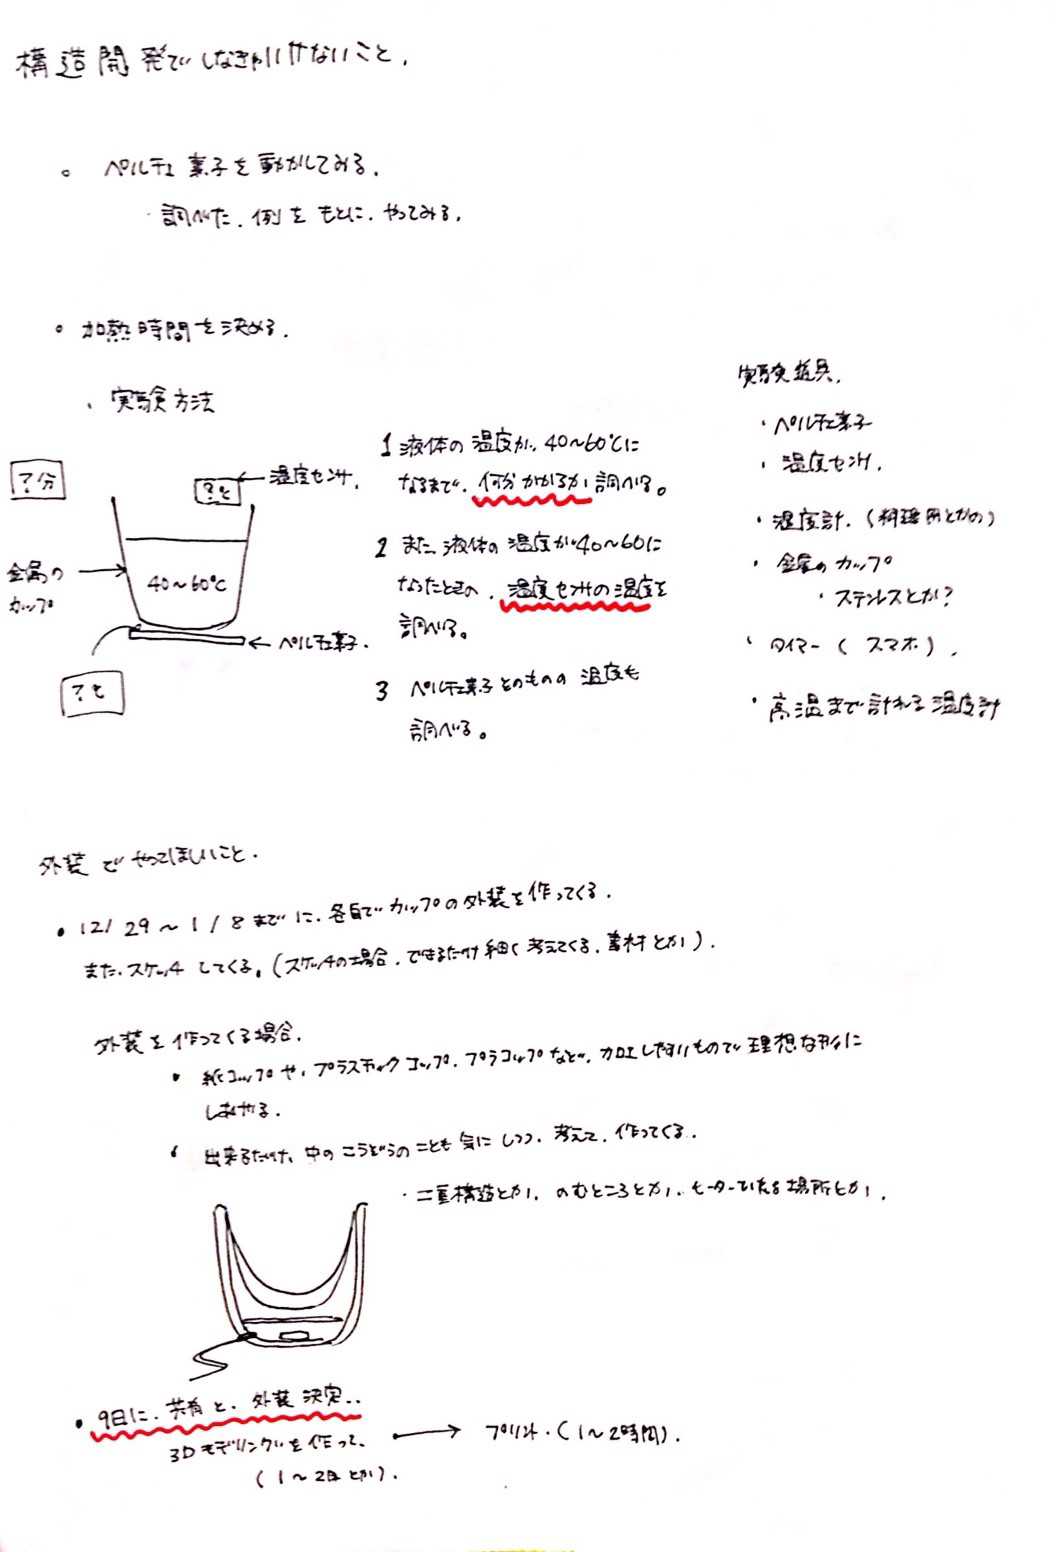 構造開発でしなきゃいけないこと.
○ ペルチェ素子を動かしてみる.
・調べた.例をもとに.やってみる.
○ 加熱時間を決める.
・実験方法
?分
?℃
温度センサ.
金属の
カップ
40~60℃
ペルチェ素子.
?℃
1 液体の温度が.40~60℃に
なるまで.何分かかるか調べる。
2 また.液体の温度が40~60に
なったときの.温度センサの温度を
調べる。
3 ペルチェ素子そのものの温度も
調べる。
実験道具.
・ペルチェ素子
・温度センサ.
・温度計.(料理用とかの)
・金属のカップ
・ステンレスとか?
・タイマー(スマホ).
・高温まで計れる温度計
外装でやってほしいこと.
・12/29~1/8までに.各自でカップの外装を作ってくる.
また.スケッチしてくる。(スケッチの場合.できるだけ細く考えてくる.素材とか).
外装を作ってくる場合.
・紙コップや.プラスチックコップ.プラコップなどの.加工しやすいもので理想な形に
してみる.
・出来るだけ.中のこうぞうのことも気にしつつ.考えて.作ってくる.
・二重構造とか.のむところとか.ヒーターいれる場所とか.
・9日に.共有と.外装決定..
3Dモデリングを作って.
(1~2日とか).
プリント.(1~2時間).